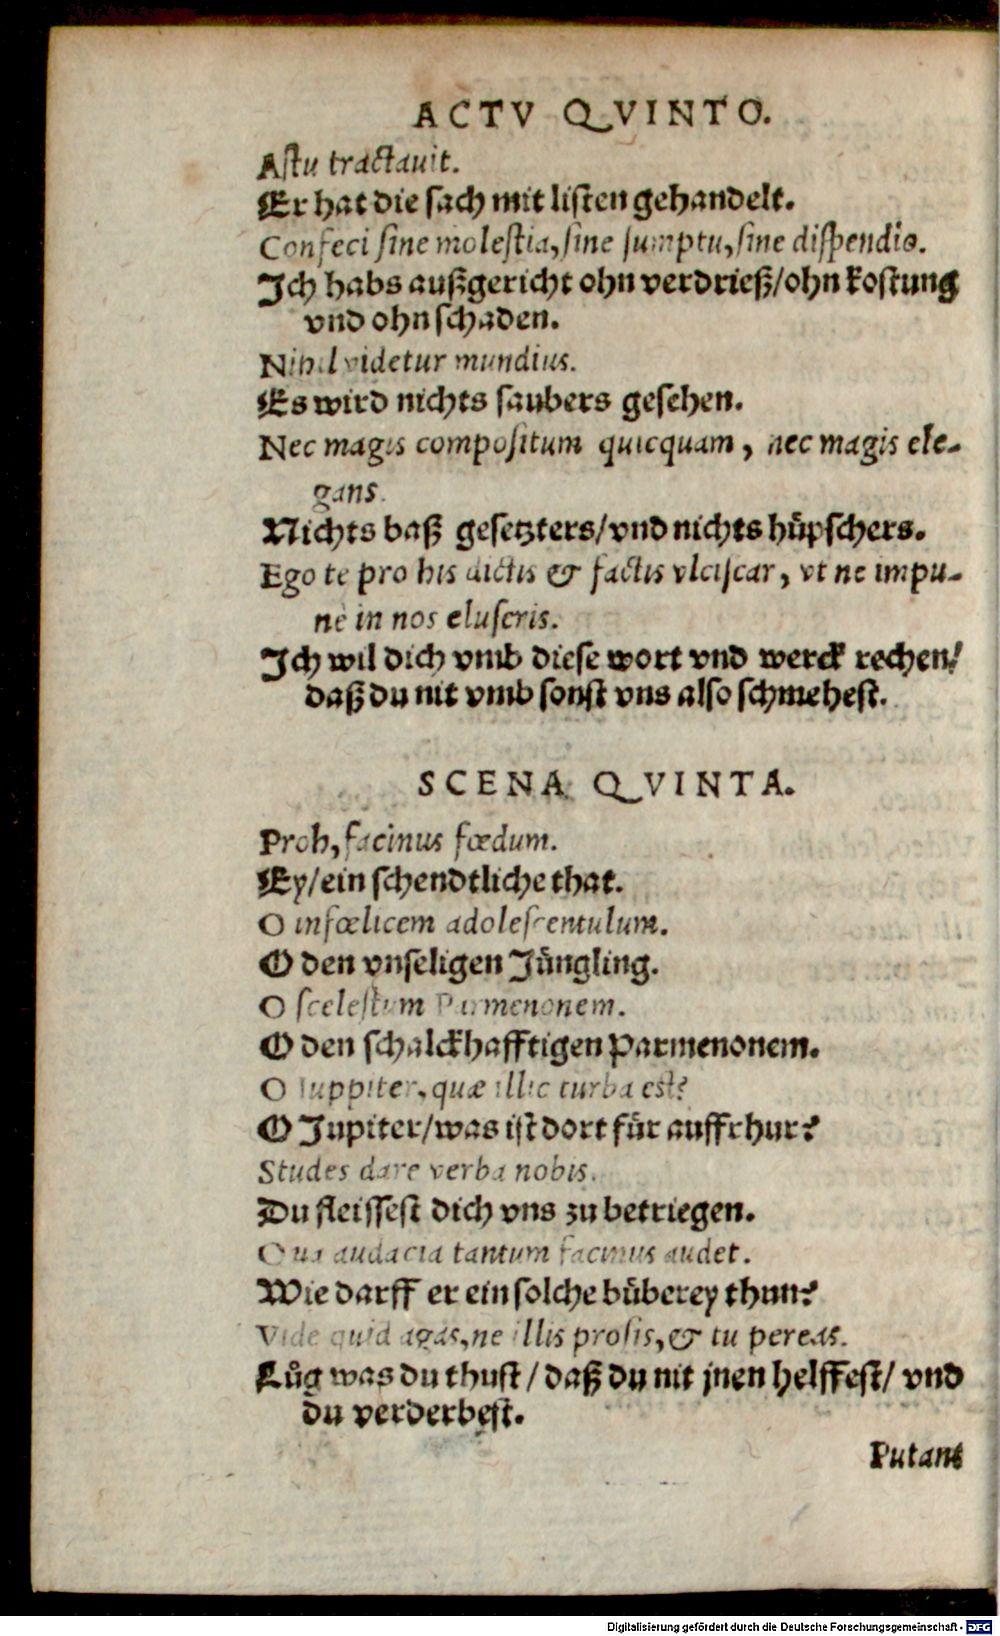 ACTV QVINTO.
Aſtu tractauit.
Er hat die ſach mit liſten gehandelt.
Confeci ſine moleſtia, ſine ſumptu, ſine diſpendio.
Ich habs außgericht ohn verdrieß/ohn koſtung
vnd ohn ſchaden.
Nihil videtur mundius.
Es wird nichts ſaubers geſehen.
Nec magis compoſitum quicquam, nec magis ele-
gans.
Nichts baß geſetzters/vnd nichts huͤpſchers.
Ego te pro his dictis & factis vlciſcar, vt ne impu-
ne in nos eluſeris.
Ich wil dich vmb dieſe wort vnd werck rechen/
daß du nit vmb ſonſt vns alſo ſchmeheſt.
SCENA QVINTA.
Proh, facinus fœdum.
Ey/ein ſchendtliche that.
O infœlicem adoleſcentulum.
O den vnſeligen Juͤngling.
O ſceleſtum Parmenonem.
O den ſchalckhafftigen Parmenonem.
O Iuppiter, quæ illic turba est?
O Jupiter/was iſt dort fuͤr auffrhur?
Studes dare verba nobis.
Du fleiſſeſt dich vns zu betriegen.
Qua audacia tantum facinus audet.
Wie darff er ein ſolche buͤberey thun?
Vide quid agas, ne illis proſis, & tu pereas.
Luͦg was du thuſt/ daß du nit jnen helffeſt/ vnd
du verderbeſt.
Putant
Digitalisierung gefördert durch die Deutsche Forschungsgemeinschaft - DFG